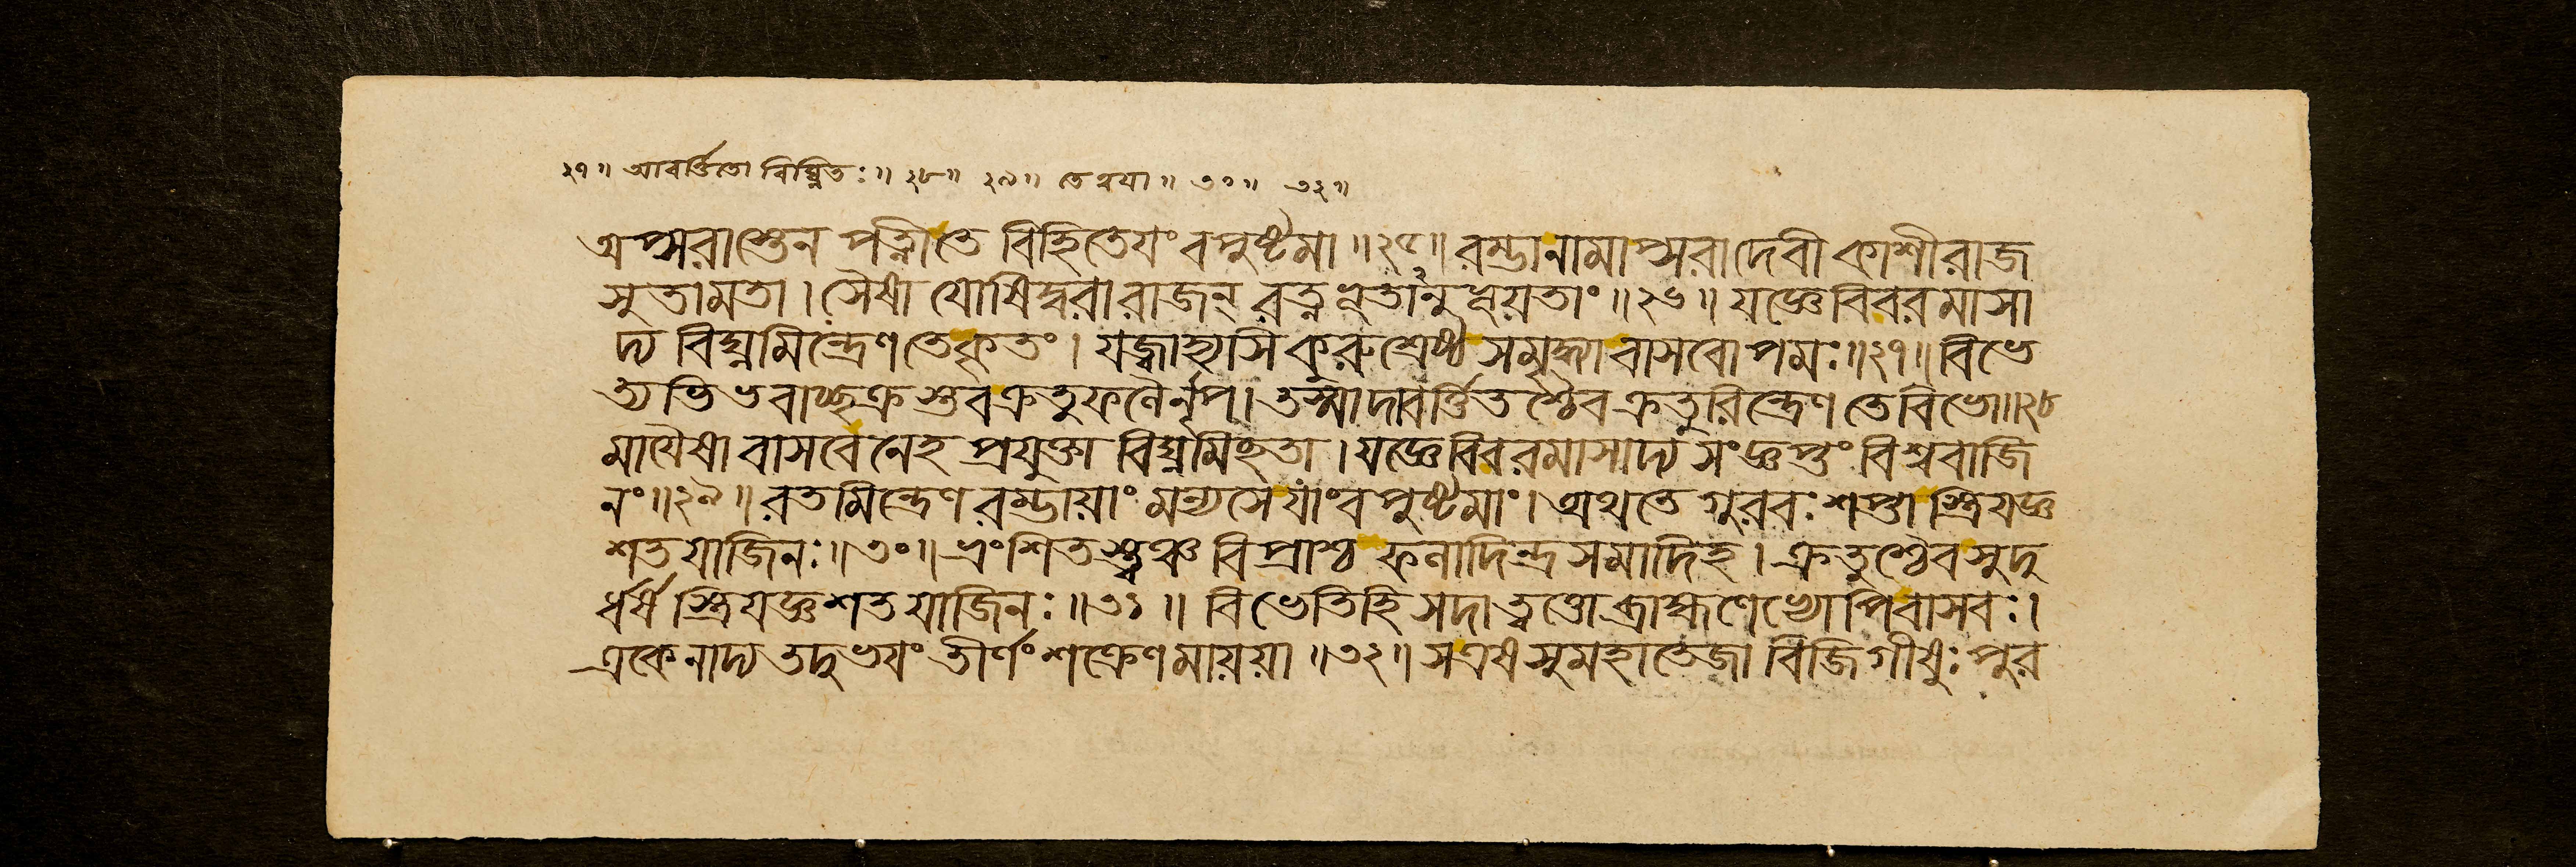 ২৭॥ আবর্ত্তিতো বিঘ্নিতঃ॥ ২৮॥ ২৯॥ তে ত্রয়া॥ ৩০॥ ৩২॥
অপ্সরাস্তেন পত্নীতে বিহিতেয়ং বপুষ্টমা॥২৫॥ রম্ভানামাপ্সরাদেবী কাশীরাজ
সুতামতা। সৈষা যোষিদ্বরা রাজন্ রত্নভূতানুভূয়তাং॥২৬॥ যজ্ঞেবিবরমাসা
দ্য বিঘ্নমিন্দ্রেণতেকৃতং। যজ্বাহ্যসি কুরুশ্রেষ্ঠ সমৃদ্ধ্যা বাসবোপমঃ॥২৭॥ বিভে
ত্যভিভবাচ্ছক্রস্তবক্রতুফলৈর্নৃপ। তস্মাদাবর্ত্তিতশ্চৈব ক্রতুরিন্দ্রেণ তেবিভো॥২৮
মায়ৈষা বাসবেনেহ প্রযুক্তা বিঘ্নমিচ্ছতা। যজ্ঞেবিবরমাসাদ্য সংজ্ঞপ্তং বিশ্ববাজি
নং॥২৯॥ রতমিন্দ্রেণ রম্ভায়াং মন্যসেয়াংবপুষ্টমাং। অথতে গুরবঃ শপ্তা স্ত্রিযজ্ঞ
শতযাজিনঃ॥৩০॥ ভ্রংশিতস্ত্বঞ্চ বিপ্রাশ্চ ফলাদিন্দ্রসমাদিহ। ক্রতুশ্চৈব সুদু
র্ধর্ষ স্ত্রিযজ্ঞশতযাজিনঃ॥৩১॥ বিভেতিহি সদাত্বত্তো ব্রাহ্মণেভ্যোপিবাসবঃ।
একেনাদ্য তদুভয়ং তীর্ণং শক্রেণমায়য়া॥৩২॥ সএষ সুমহাতেজা বিজিগীষুঃ পুর